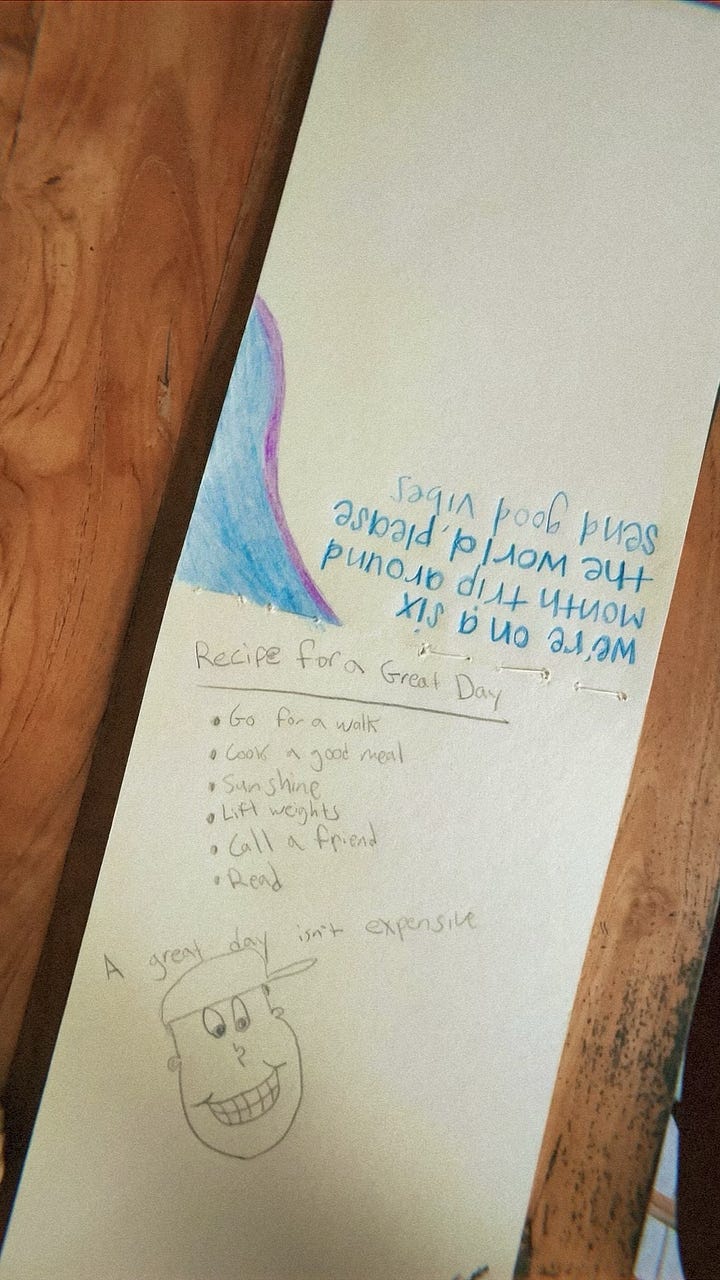 we're on a six
month trip around
the world, please
send good vibes
Recipe for a Great Day
• Go for a walk
• Cook a good meal
• Sunshine
• Lift weights
• Call a friend
• Read
A great day isn't expensive